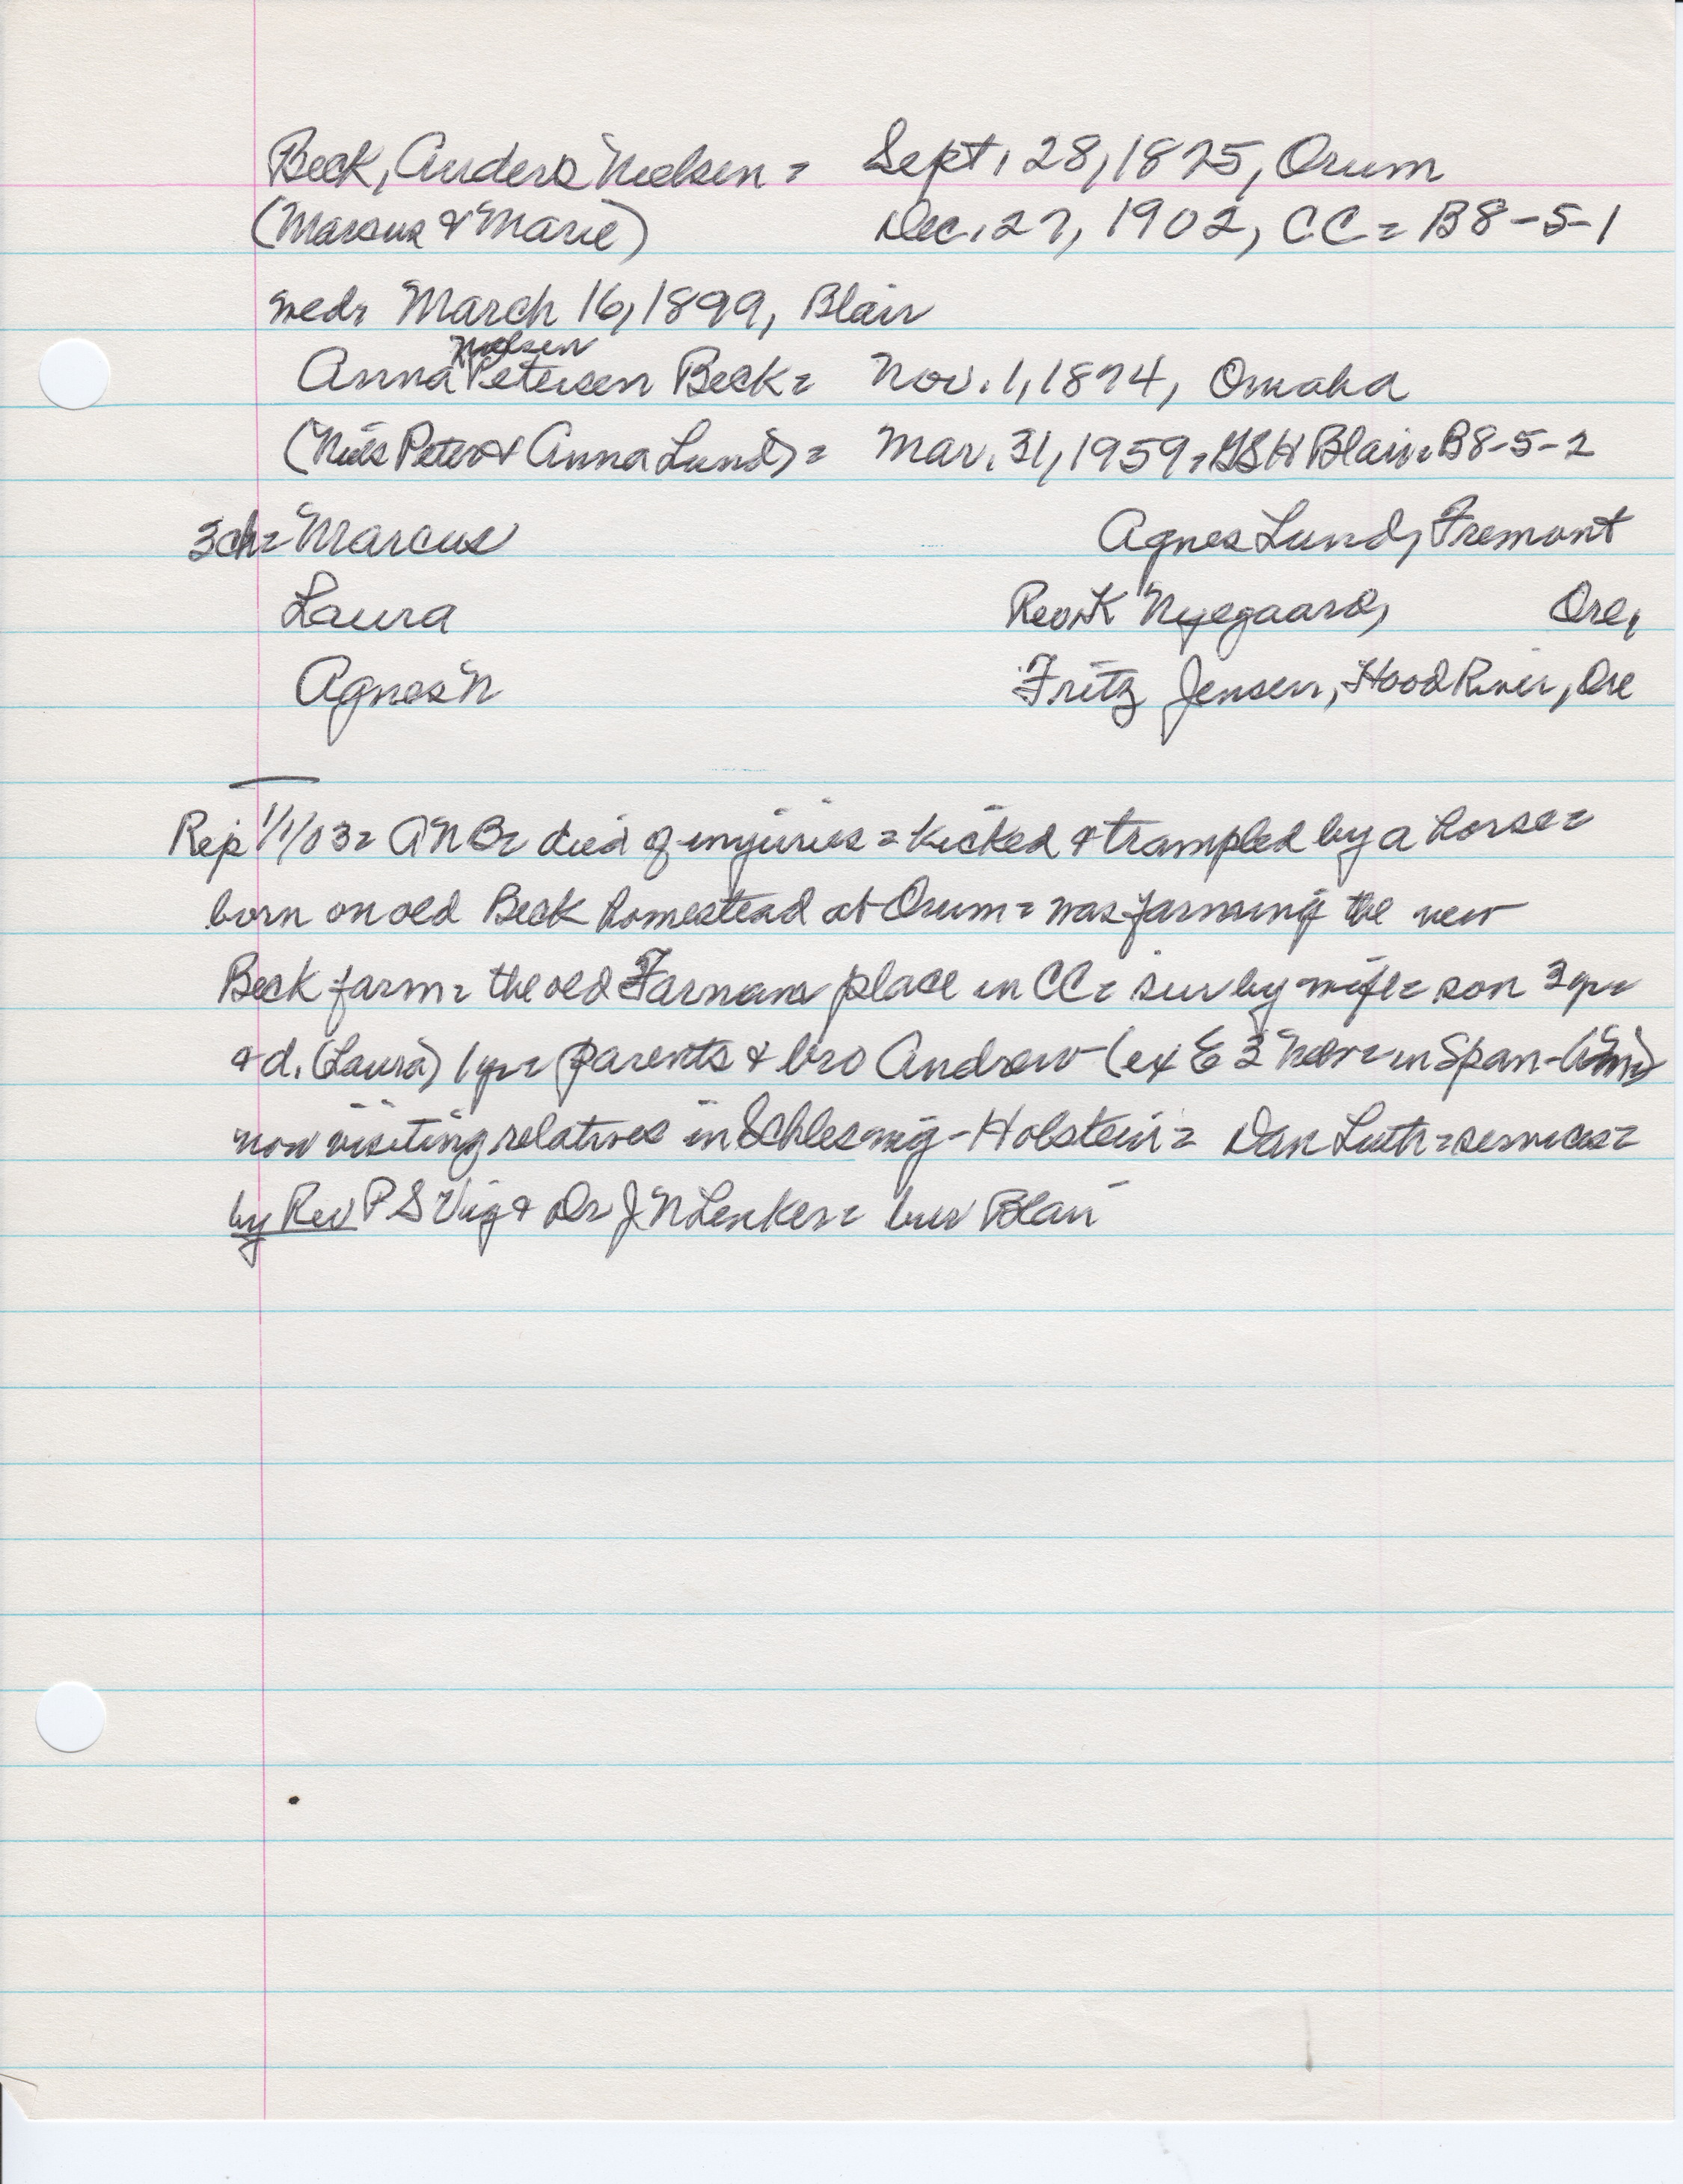 Beck, Anders Nielsen = Sept. 28, 1875, Orum
(Marcus & Marie) Dec. 27, 1902, CC = B8-5-1
wed. March 16, 1899, Blair
Nielsen
Anna Petersen Beck = Nov. 1, 1874, Omaha
(Niels Peter & Anna Lund) = Mar. 31, 1959 = GSH Blair = B8-5-2
3ch = Marcus Agnes Lund, Fremont
Laura Rev. K Nyegaard, Ore.
Agnes N Fritz Jensen, Hood River, Ore
Rep 1/1/03 = ANB = died of injuries = kicked & trampled by a horse =
born on old Beck homestead at Orum = was farming the new
Beck farm = the old Farnam place in CC = sur by wife = son 3 yr =
& d. (Laura) 1 yr = parents & bro Andrew (ex E 3 Nebr = in Span-Am)
now visiting relatives in Schleswig-Holstein = Dan Luth = services =
by Rev P S Vig & Dr J N Lenker = bur Blair